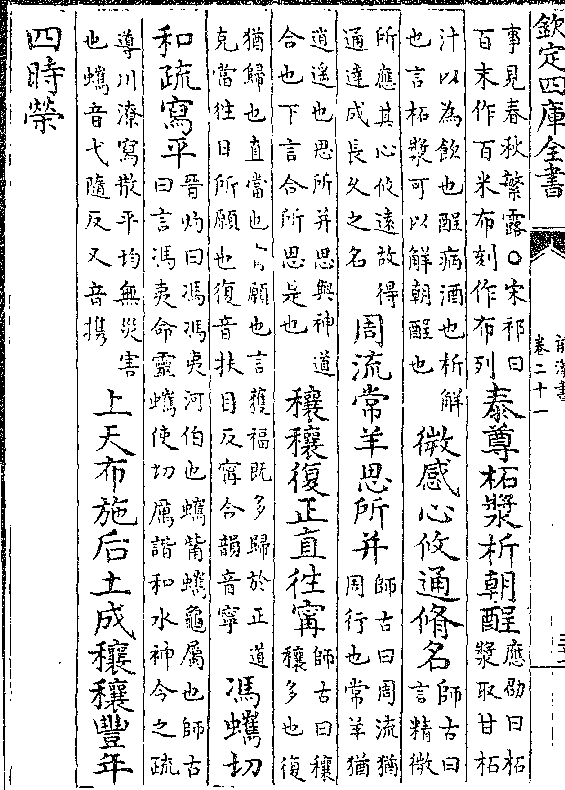 欽定四庫全書
前漢書
卷二十一
事見春秋繁露○宋祁曰
百末作百米布刻作布列
泰尊柘漿析朝酲
應劭曰柘
漿取甘柘
汁以為飲也酲病酒也析解
也言柘漿可以解朝酲也
微感心攸通脩名
師古曰
言精微
所應其心攸遠故得
通達成長久之名
周流常羊思所并
師古曰周流猶
周行也常羊猶
逍遥也思所并思與神道
合也下言合所思是也
穰穰復正直往甯
師古曰穰
穰多也復
猶歸也直當也甯願也言獲福既多歸於正道
克當往日所願也復音扶目反甯合韻音寧
馮蠵切
和疏寫平
晉灼曰馮馮夷河伯也蠵觜蠵龜屬也師古
曰言馮夷命靈蠵使切厲諧和水神令之疏
導川潦寫散平均無災害
也蠵音弋隨反又音攜
上天布施后土成穰穰豐年
四時榮